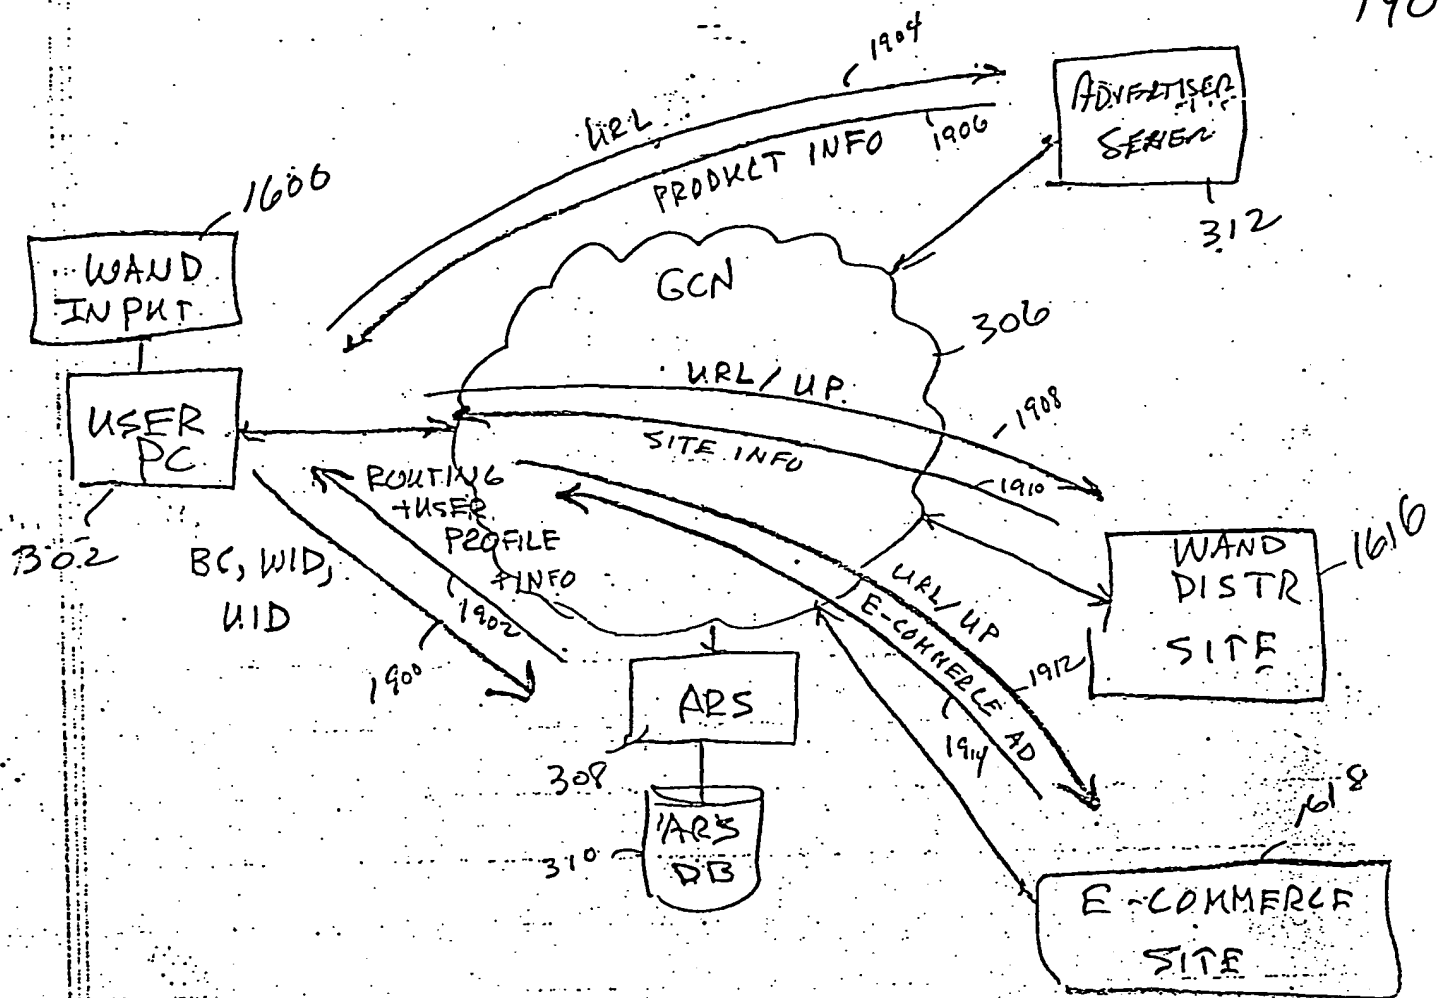 190
1904
URL
PRODUCT INFO
1906
ADVERTISER
SERVER
312
1600
WAND
INPUT
GCN
306
USER
PC
302
URL/UP
1908
SITE INFO
1910
ROUTING
+USER
PROFILE
+INFO
1902
BC, WID,
UID
1900
WAND
DISTR
SITE
1616
URL/UP
1912
E-COMMERCE AD
1914
ARS
308
ARS
DB
310
1618
E-COMMERCE
SITE